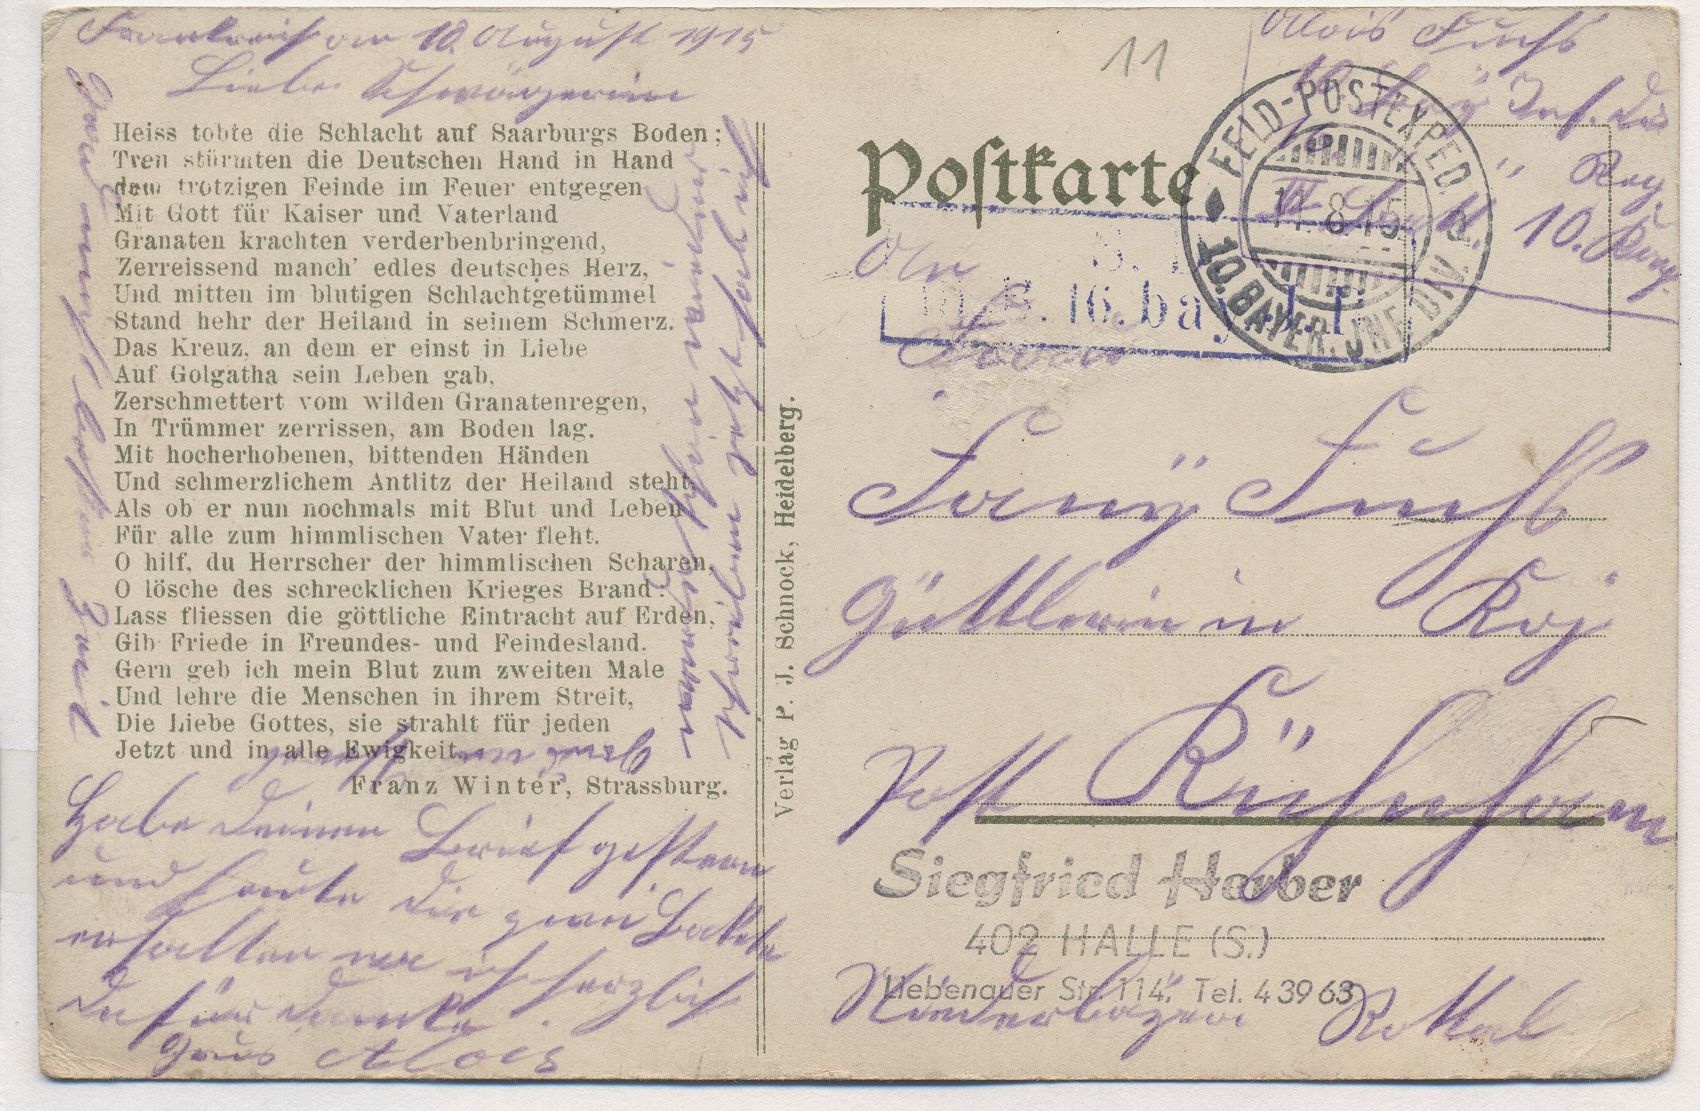 Frankreich am 10. August 1915
Liebe Schwägerin
Heiss tobte die Schlacht auf Saarburgs Boden;
Tren stürmten die Deutschen Hand in Hand
dem trotzigen Feinde im Feuer entgegen
Mit Gott für Kaiser und Vaterland
Granaten krachten verderbenbringend,
Zerreissend manch' edles deutsches Herz,
Und mitten im blutigen Schlachtgetümmel
Stand hehr der Heiland in seinem Schmerz.
Das Kreuz, an dem er einst in Liebe
Auf Golgatha sein Leben gab,
Zerschmettert vom wilden Granatenregen,
In Trümmer zerrissen, am Boden lag.
Mit hocherhobenen, bittenden Händen
Und schmerzlichem Antlitz der Heiland steht,
Als ob er nun nochmals mit Blut und Leben
Für alle zum himmlischen Vater fleht.
O hilf, du Herrscher der himmlischen Scharen,
O lösche des schrecklichen Krieges Brand!
Lass fliessen die göttliche Eintracht auf Erden,
Gib Friede in Freundes- und Feindesland.
Gern geb ich mein Blut zum zweiten Male
Und lehre die Menschen in ihrem Streit,
Die Liebe Gottes, sie strahlt für jeden
Jetzt und in alle Ewigkeit.
Franz Winter, Strassburg.
Habe deinen Brief gestern
und heute die zwei Packete
erhalten wo ich herzlich
dafür danke.
Grus Alois
schreiben jetzt hab ich
Verlag P. J. Schnock, Heidelberg.
11
Alois Fuchs
10. Bay. Inf. Div.
16. " " Reg.
10. Komp.
Postkarte
FELD-POSTEXPED. d.
11. 8. 15
10. BAYER. JNF. DIV.
16. bay. I.
An
Frau
Fany Fuchs
Gütlerin in Roj
Post Rühsham
Siegfried Herber
402 HALLE (S.)
Liebenauer Str. 114, Tel. 4 39 63
Niederbayern Rottal